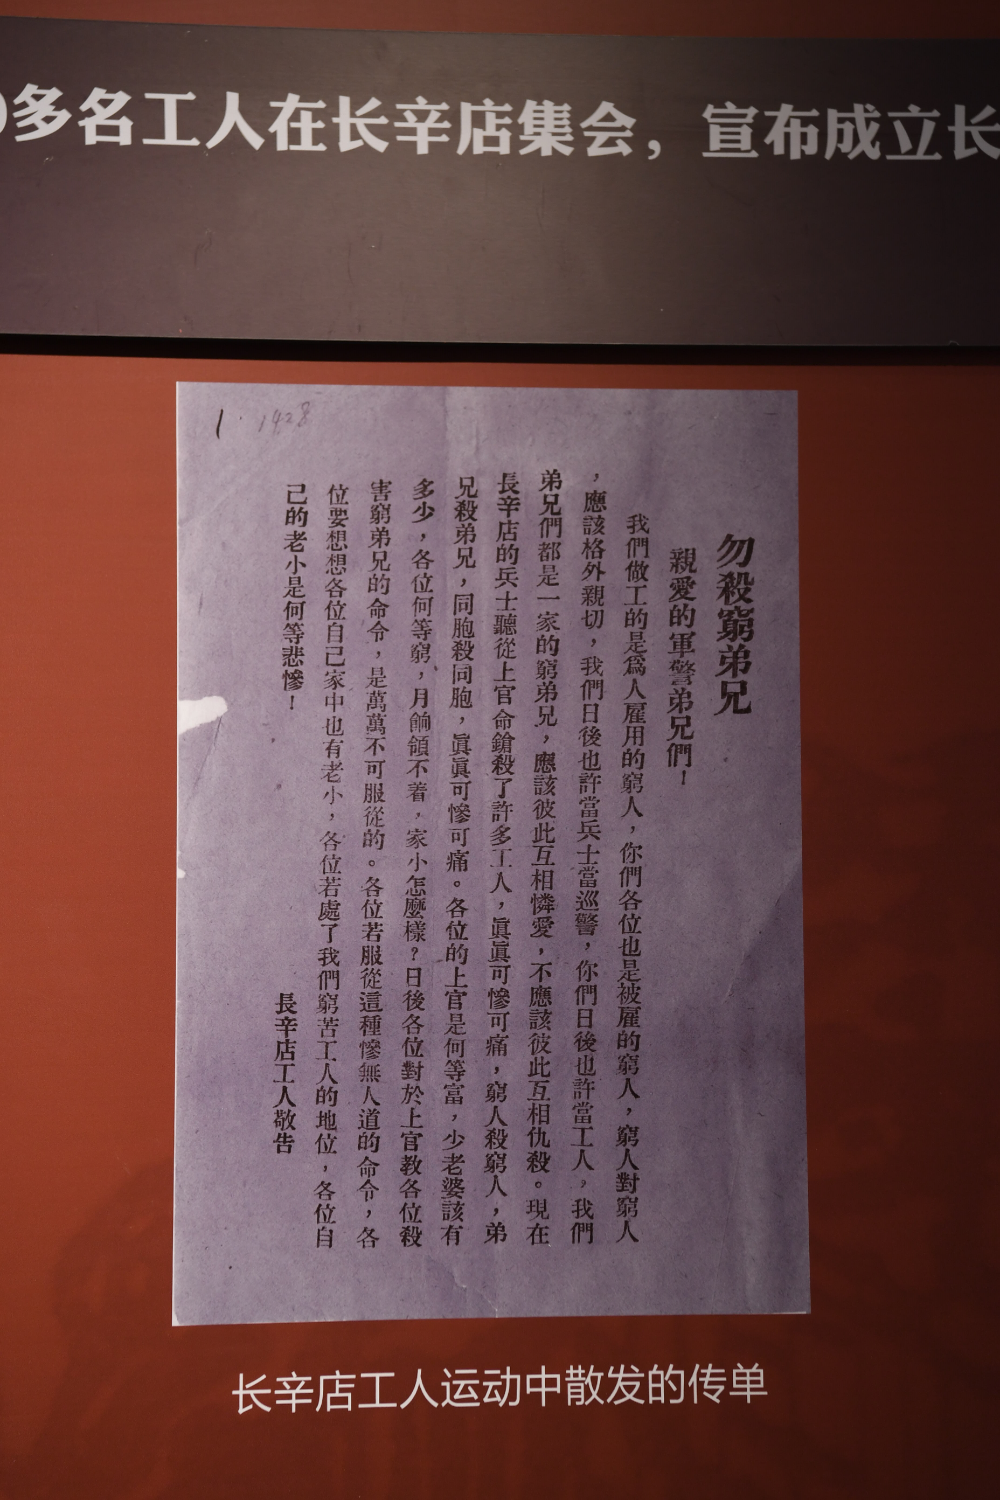 多名工人在长辛店集会，宣布成立长
1 · 1428
勿殺窮弟兄
親愛的軍警弟兄們！
我們做工的是爲人雇用的窮人，你們各位也是被雇的窮人，窮人對窮人
，應該格外親切，我們日後也許當兵士當巡警，你們日後也許當工人，我們
弟兄們都是一家的窮弟兄，應該彼此互相憐愛，不應該彼此互相仇殺。現在
長辛店的兵士聽從上官命鎗殺了許多工人，眞眞可慘可痛，窮人殺窮人，弟
兄殺弟兄，同胞殺同胞，眞眞可慘可痛。各位的上官是何等富，少老婆該有
多少，各位何等窮，月餉領不着，家小怎麼樣？日後各位對於上官教各位殺
害窮弟兄的命令，是萬萬不可服從的。各位若服從這種慘無人道的命令，各
位要想想各位自己家中也有老小，各位若處了我們窮苦工人的地位，各位自
己的老小是何等悲慘！
長辛店工人敬告
长辛店工人运动中散发的传单